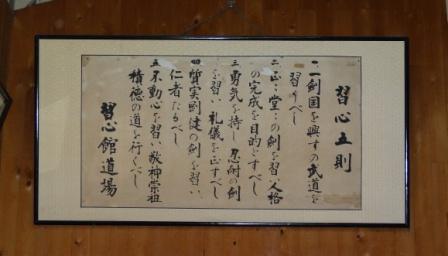 習心五則
一、剣国を興すの武道を
習うべし
二、正々堂々の剣を習い人格
の完成を目的とすべし
三、勇気を持し忍耐の剣
を習い礼儀を正すべし
四、質実剛健の剣を習い、
仁者たるべし
五、不動心を習い敬神崇祖
積徳の道を行くべし
習心館道場